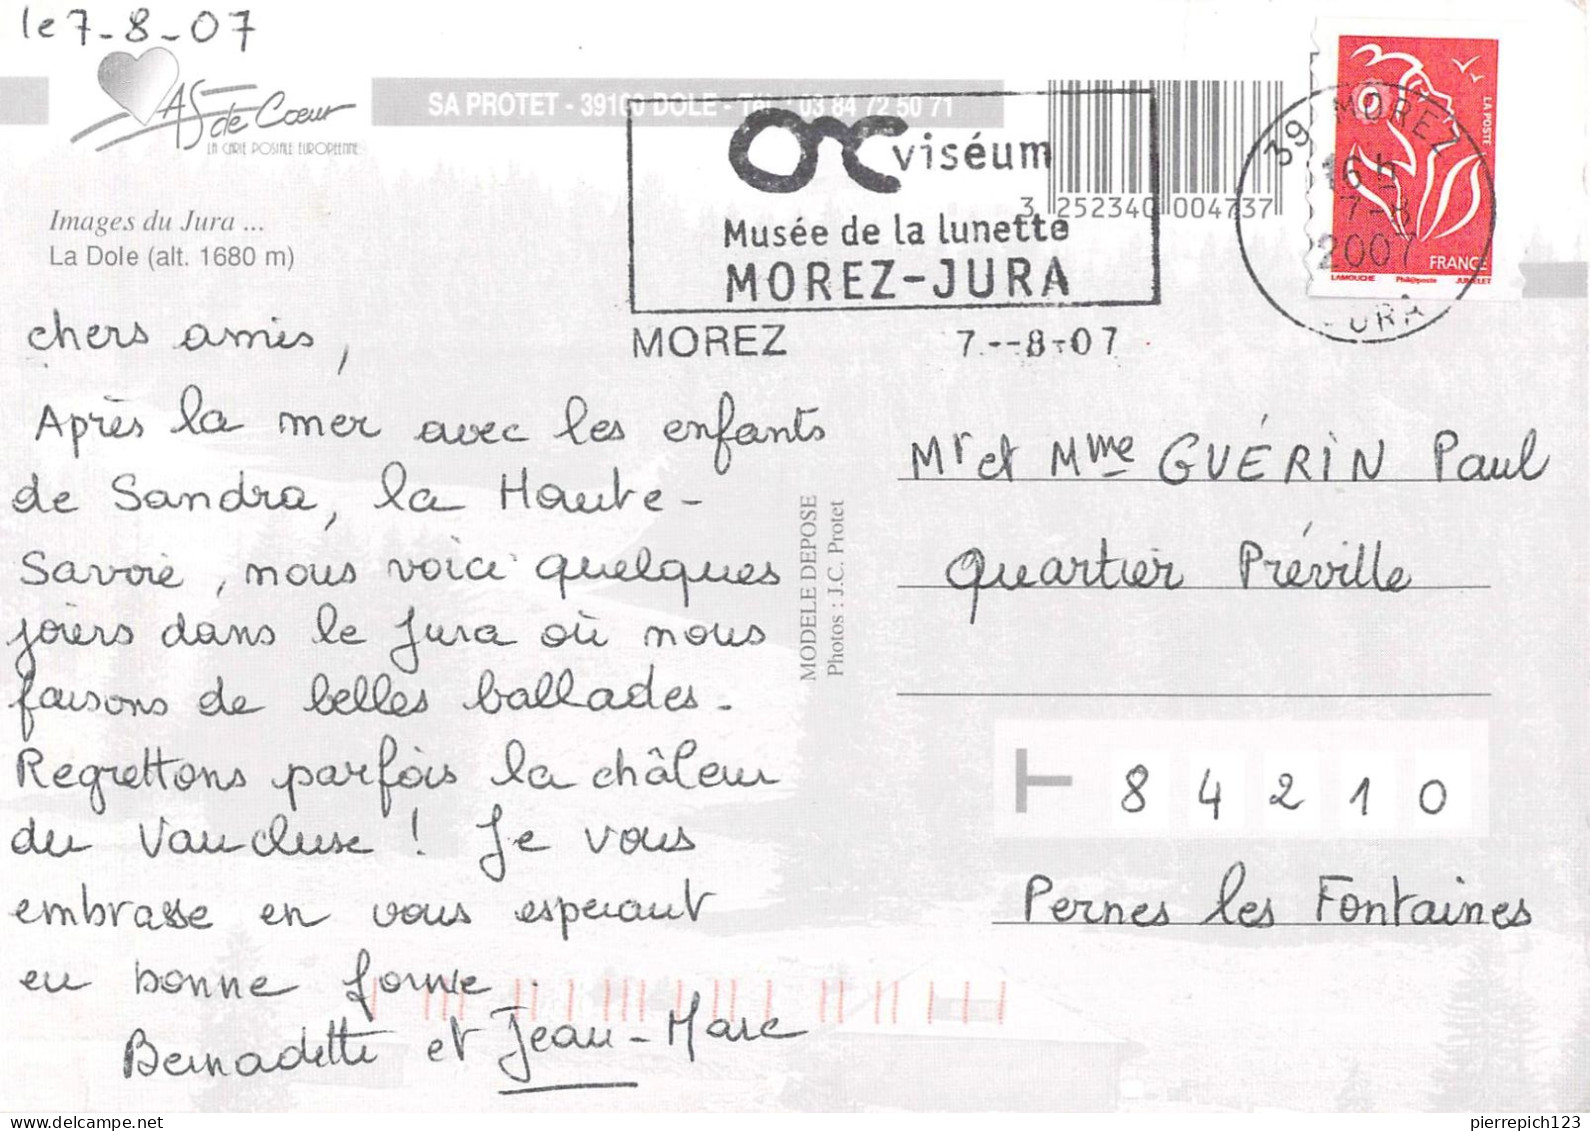 le 7-8-07
As de Cœur
LA CARTE POSTALE EUROPEENNE
SA PROTET - 39100 DOLE - Tél. : 03 84 72 50 71
viséum
Musée de la lunette
MOREZ-JURA
MOREZ 7.--8-07
3 252340 004737
39 MOREZ
16 h
7-8
2007
JURA
LA POSTE
FRANCE
LAMOUCHE Phil@poste JUMELET
Images du Jura ...
La Dole (alt. 1680 m)
chers amis,
Après la mer avec les enfants
de Sandra, la Haute-
Savoie, nous voici quelques
jours dans le Jura où nous
faisons de belles ballades.
Regrettons parfois la châleur
du Vaucluse ! Je vous
embrasse en vous esperant
en bonne forme.
Bernadette et Jean-Marc
MODELE DEPOSE
Photos : J.C. Protet
Mr et Mme GUÉRIN Paul
Quartier Préville
84210
Pernes les Fontaines
pierrepich123